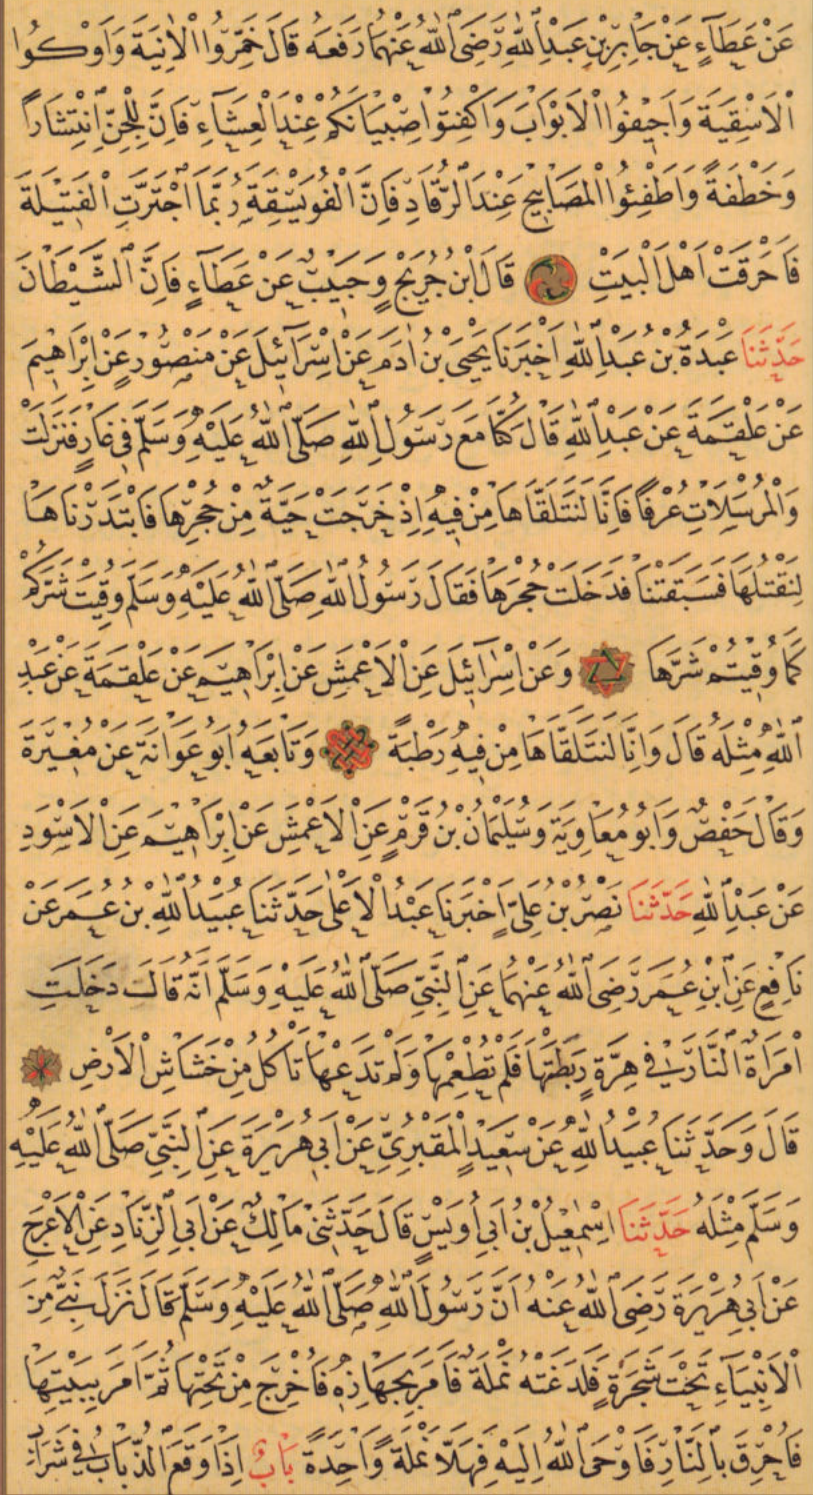 عَنْ عَطَآءٍ عَنْ جَابِرِ بْنِ عَبْدِاللّٰهِ رَضِيَ اللّٰهُ عَنْهُمَا رَفَعَهُ قَالَ خَمِّرُوا الْاٰنِيَةَ وَاَوْكُوا
الْاَسْقِيَةَ وَاَجِيفُوا الْاَبْوَابَ وَاكْفِتُوا صِبْيَانَكُمْ عِنْدَ الْعِشَآءِ فَاِنَّ لِلْجِنِّ انْتِشَارًا
وَخَطْفَةً وَاَطْفِئُوا الْمَصَابِيحَ عِنْدَ الرُّقَادِ فَاِنَّ الْفُوَيْسِقَةَ رُبَّمَا اجْتَرَّتِ الْفَتِيلَةَ
فَاَحْرَقَتْ اَهْلَ الْبَيْتِ قَالَ ابْنُ جُرَيْجٍ وَحَبِيبٌ عَنْ عَطَآءٍ فَاِنَّ الشَّيْطَانَ
حَدَّثَنَا عَبْدَةُ بْنُ عَبْدِاللّٰهِ اَخْبَرَنَا يَحْيَى بْنُ اٰدَمَ عَنْ اِسْرَآئِيلَ عَنْ مَنْصُورٍ عَنْ اِبْرَاهِيمَ
عَنْ عَلْقَمَةَ عَنْ عَبْدِاللّٰهِ قَالَ كُنَّا مَعَ رَسُولِ اللّٰهِ صَلَّى اللّٰهُ عَلَيْهِ وَسَلَّمَ فِي غَارٍ فَنَزَلَتْ
وَالْمُرْسَلَاتِ عُرْفًا فَاِنَّا لَنَتَلَقَّاهَا مِنْ فِيهِ اِذْ خَرَجَتْ حَيَّةٌ مِنْ جُحْرِهَا فَابْتَدَرْنَاهَا
لِنَقْتُلَهَا فَسَبَقَتْنَا فَدَخَلَتْ جُحْرَهَا فَقَالَ رَسُولُ اللّٰهِ صَلَّى اللّٰهُ عَلَيْهِ وَسَلَّمَ وُقِيَتْ شَرَّكُمْ
كَمَا وُقِيتُمْ شَرَّهَا وَعَنْ اِسْرَآئِيلَ عَنِ الْاَعْمَشِ عَنْ اِبْرَاهِيمَ عَنْ عَلْقَمَةَ عَنْ عَبْدِ
اللّٰهِ مِثْلَهُ قَالَ وَاِنَّا لَنَتَلَقَّاهَا مِنْ فِيهِ رَطْبَةً وَتَابَعَهُ اَبُو عَوَانَةَ عَنْ مُغِيرَةَ
وَقَالَ حَفْصٌ وَاَبُو مُعَاوِيَةَ وَسُلَيْمَانُ بْنُ قَرْمٍ عَنِ الْاَعْمَشِ عَنْ اِبْرَاهِيمَ عَنِ الْاَسْوَدِ
عَنْ عَبْدِاللّٰهِ حَدَّثَنَا نَصْرُ بْنُ عَلِيٍّ اَخْبَرَنَا عَبْدُ الْاَعْلٰى حَدَّثَنَا عُبَيْدُاللّٰهِ بْنُ عُمَرَ عَنْ
نَافِعٍ عَنِ ابْنِ عُمَرَ رَضِيَ اللّٰهُ عَنْهُمَا عَنِ النَّبِيِّ صَلَّى اللّٰهُ عَلَيْهِ وَسَلَّمَ اَنَّهُ قَالَ دَخَلَتِ
امْرَاَةٌ النَّارَ فِي هِرَّةٍ رَبَطَتْهَا فَلَمْ تُطْعِمْهَا وَلَمْ تَدَعْهَا تَاْكُلُ مِنْ خَشَاشِ الْاَرْضِ
قَالَ وَحَدَّثَنَا عُبَيْدُاللّٰهِ عَنْ سَعِيدٍ الْمَقْبُرِيِّ عَنْ اَبِي هُرَيْرَةَ عَنِ النَّبِيِّ صَلَّى اللّٰهُ عَلَيْهِ
وَسَلَّمَ مِثْلَهُ حَدَّثَنَا اِسْمٰعِيلُ بْنُ اَبِي اُوَيْسٍ قَالَ حَدَّثَنِي مَالِكٌ عَنْ اَبِي الزِّنَادِ عَنِ الْاَعْرَجِ
عَنْ اَبِي هُرَيْرَةَ رَضِيَ اللّٰهُ عَنْهُ اَنَّ رَسُولَ اللّٰهِ صَلَّى اللّٰهُ عَلَيْهِ وَسَلَّمَ قَالَ نَزَلَ نَبِيٌّ مِنَ
الْاَنْبِيَآءِ تَحْتَ شَجَرَةٍ فَلَدَغَتْهُ نَمْلَةٌ فَاَمَرَ بِجَهَازِهِ فَاُخْرِجَ مِنْ تَحْتِهَا ثُمَّ اَمَرَ بِبَيْتِهَا
فَاُحْرِقَ بِالنَّارِ فَاَوْحَى اللّٰهُ اِلَيْهِ فَهَلَّا نَمْلَةً وَاحِدَةً بَابٌ اِذَا وَقَعَ الذُّبَابُ فِي شَرَابِ